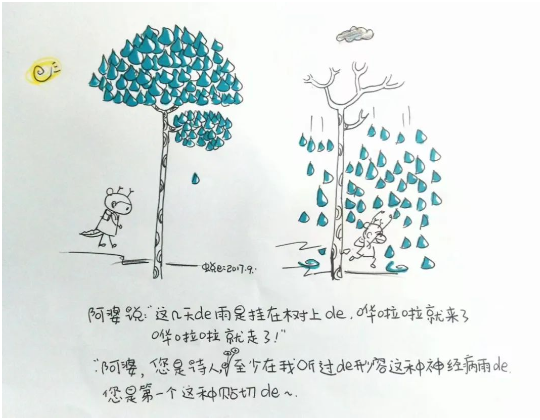 蜕e=2017.9.
阿婆说:"这几天de雨是挂在树上de,哗啦啦就来了
哗啦啦就走了!"
"阿婆,您是诗人 至少在我听过de形容这种神经病雨de
您是第一个这种贴切de~.